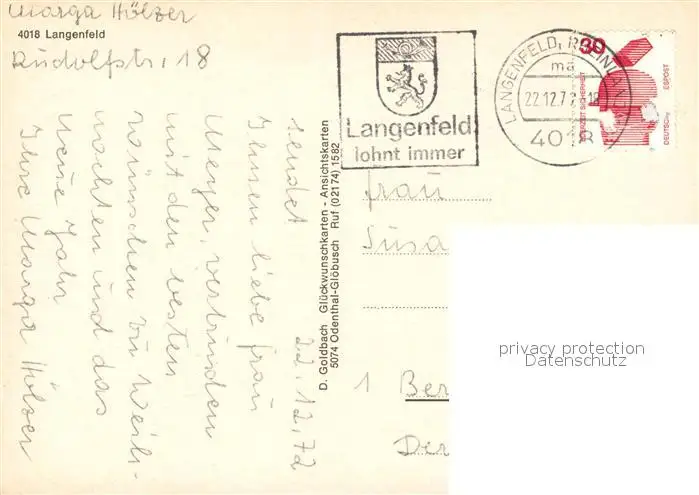 Marga Hölzer
4018 Langenfeld
Rudolfstr. 18
22.12.72
sendet
Ihnen liebe Frau
Meyer, verbunden
mit den besten
Wünschen zu Weih-
nachten und das
neue Jahr
Ihre Marga Hölzer
D. Goldbach Glückwunschkarten - Ansichtskarten
5074 Odenthal-Glöbusch Ruf (02174) 1582
Langenfeld
lohnt immer
LANGENFELD, RHEINLAND
ma
22.12.7
4018
30
JEDERZEIT SICHERHEIT
DEUTSCHE
Frau
Susa
1 Ber
Der
privacy protection
Datenschutz